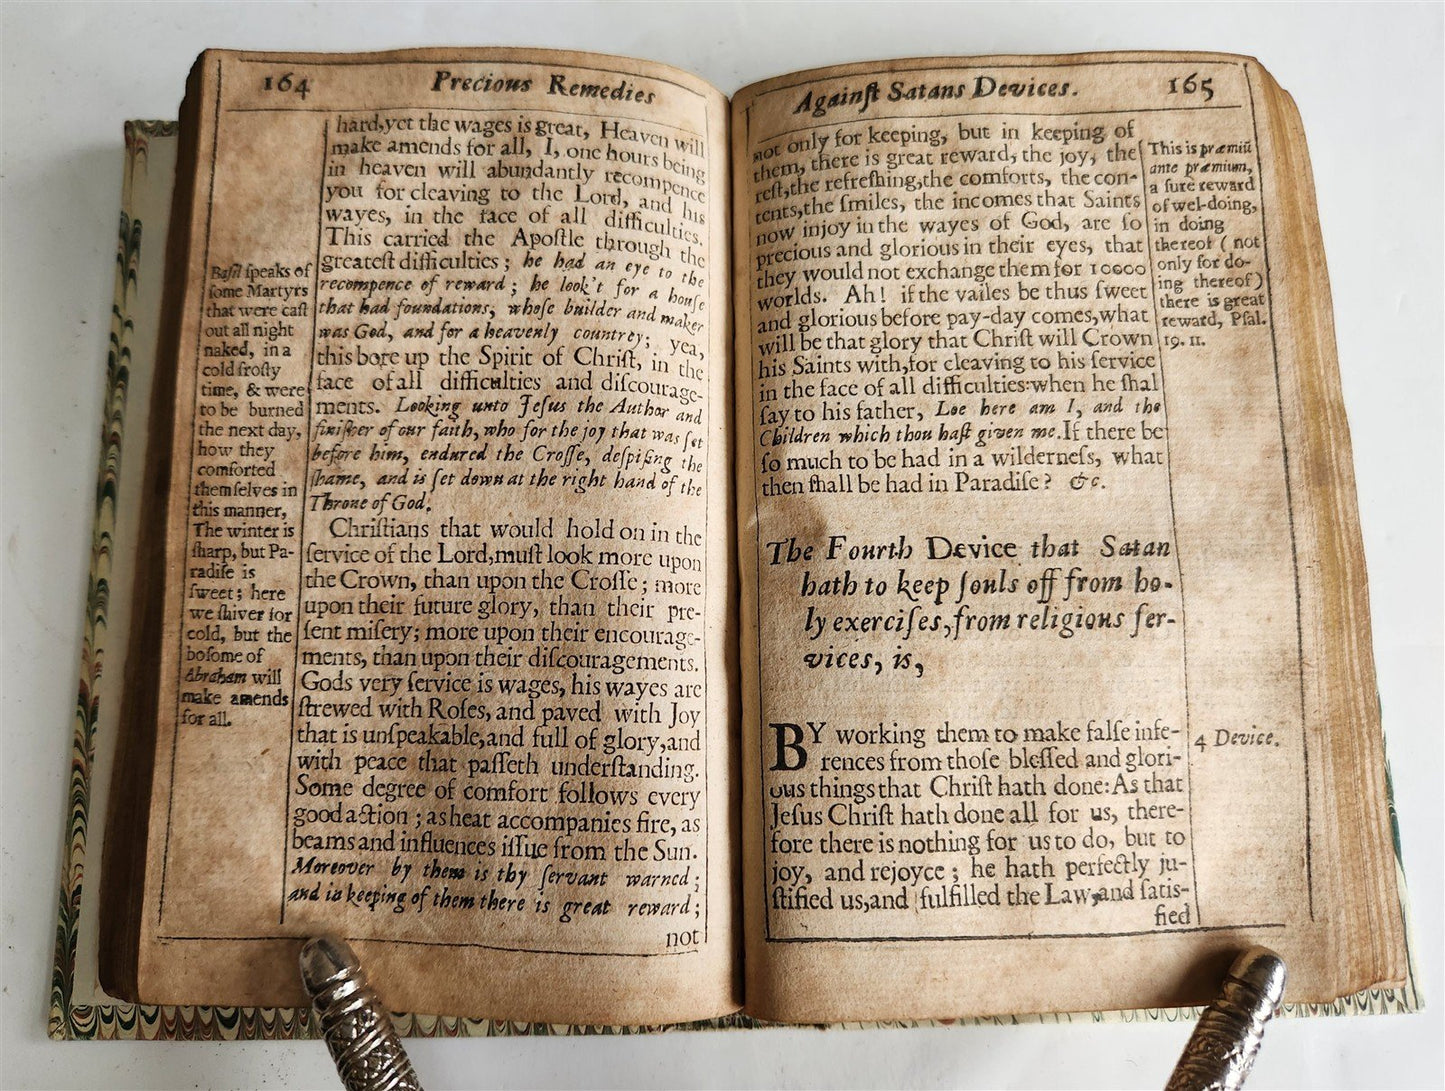 164 Precious Remedies
hard, yet the wages is great, Heaven will
make amends for all, I, one hours being
in heaven will abundantly recompence
you for cleaving to the Lord, and his
wayes, in the face of all difficulties.
This carried the Apoſtle through the
greateſt difficulties; he had an eye to the
recompence of reward; he look't for a houſe
that had foundations, whoſe builder and maker
was God, and for a heavenly countrey; yea,
this bore up the Spirit of Chriſt, in the
face of all difficulties and diſcourage-
ments. Looking unto Jeſus the Author and
finiſher of our faith, who for the joy that was ſet
before him, endured the Croſſe, deſpiſing the
ſhame, and is ſet down at the right hand of the
Throne of God.
Chriſtians that would hold on in the
ſervice of the Lord, muſt look more upon
the Crown, than upon the Croſſe; more
upon their future glory, than their pre-
ſent miſery; more upon their encourage-
ments, than upon their diſcouragements.
Gods very ſervice is wages, his wayes are
ſtrewed with Roſes, and paved with Joy
that is unſpeakable, and full of glory, and
with peace that paſſeth underſtanding.
Some degree of comfort follows every
good action; as heat accompanies fire, as
beams and influences iſſue from the Sun.
Moreover by them is thy ſervant warned;
and in keeping of them there is great reward;
not
Baſil ſpeaks of
ſome Martyrs
that were caſt
out all night
naked, in a
cold froſty
time, & were
to be burned
the next day,
how they
comforted
themſelves in
this manner,
The winter is
ſharp, but Pa-
radiſe is
ſweet; here
we ſhiver for
cold, but the
boſome of
Abraham will
make amends
for all.
Againſt Satans Devices. 165
not only for keeping, but in keeping of
them, there is great reward, the joy, the
reſt, the refreſhing, the comforts, the con-
tents, the ſmiles, the incomes that Saints
now injoy in the wayes of God, are ſo
precious and glorious in their eyes, that
they would not exchange them for 10000
worlds. Ah! if the vailes be thus ſweet
and glorious before pay-day comes, what
will be that glory that Chriſt will Crown
his Saints with, for cleaving to his ſervice
in the face of all difficulties: when he ſhal
ſay to his father, Loe here am I, and the
Children which thou haſt given me. If there be
ſo much to be had in a wilderneſs, what
then ſhall be had in Paradiſe? &c.
This is præmiũ
ante præmium,
a ſure reward
of wel-doing,
in doing
thereof (not
only for do-
ing thereof)
there is great
reward, Pſal.
19. 11.
The Fourth Device that Satan
hath to keep ſouls off from ho-
ly exerciſes, from religious ſer-
vices, is,
BY working them to make falſe infe-
rences from thoſe bleſſed and glori-
ous things that Chriſt hath done: As that
Jeſus Chriſt hath done all for us, there-
fore there is nothing for us to do, but to
joy, and rejoyce; he hath perfectly ju-
ſtified us, and fulfilled the Law, and ſatis-
fied
4 Device.